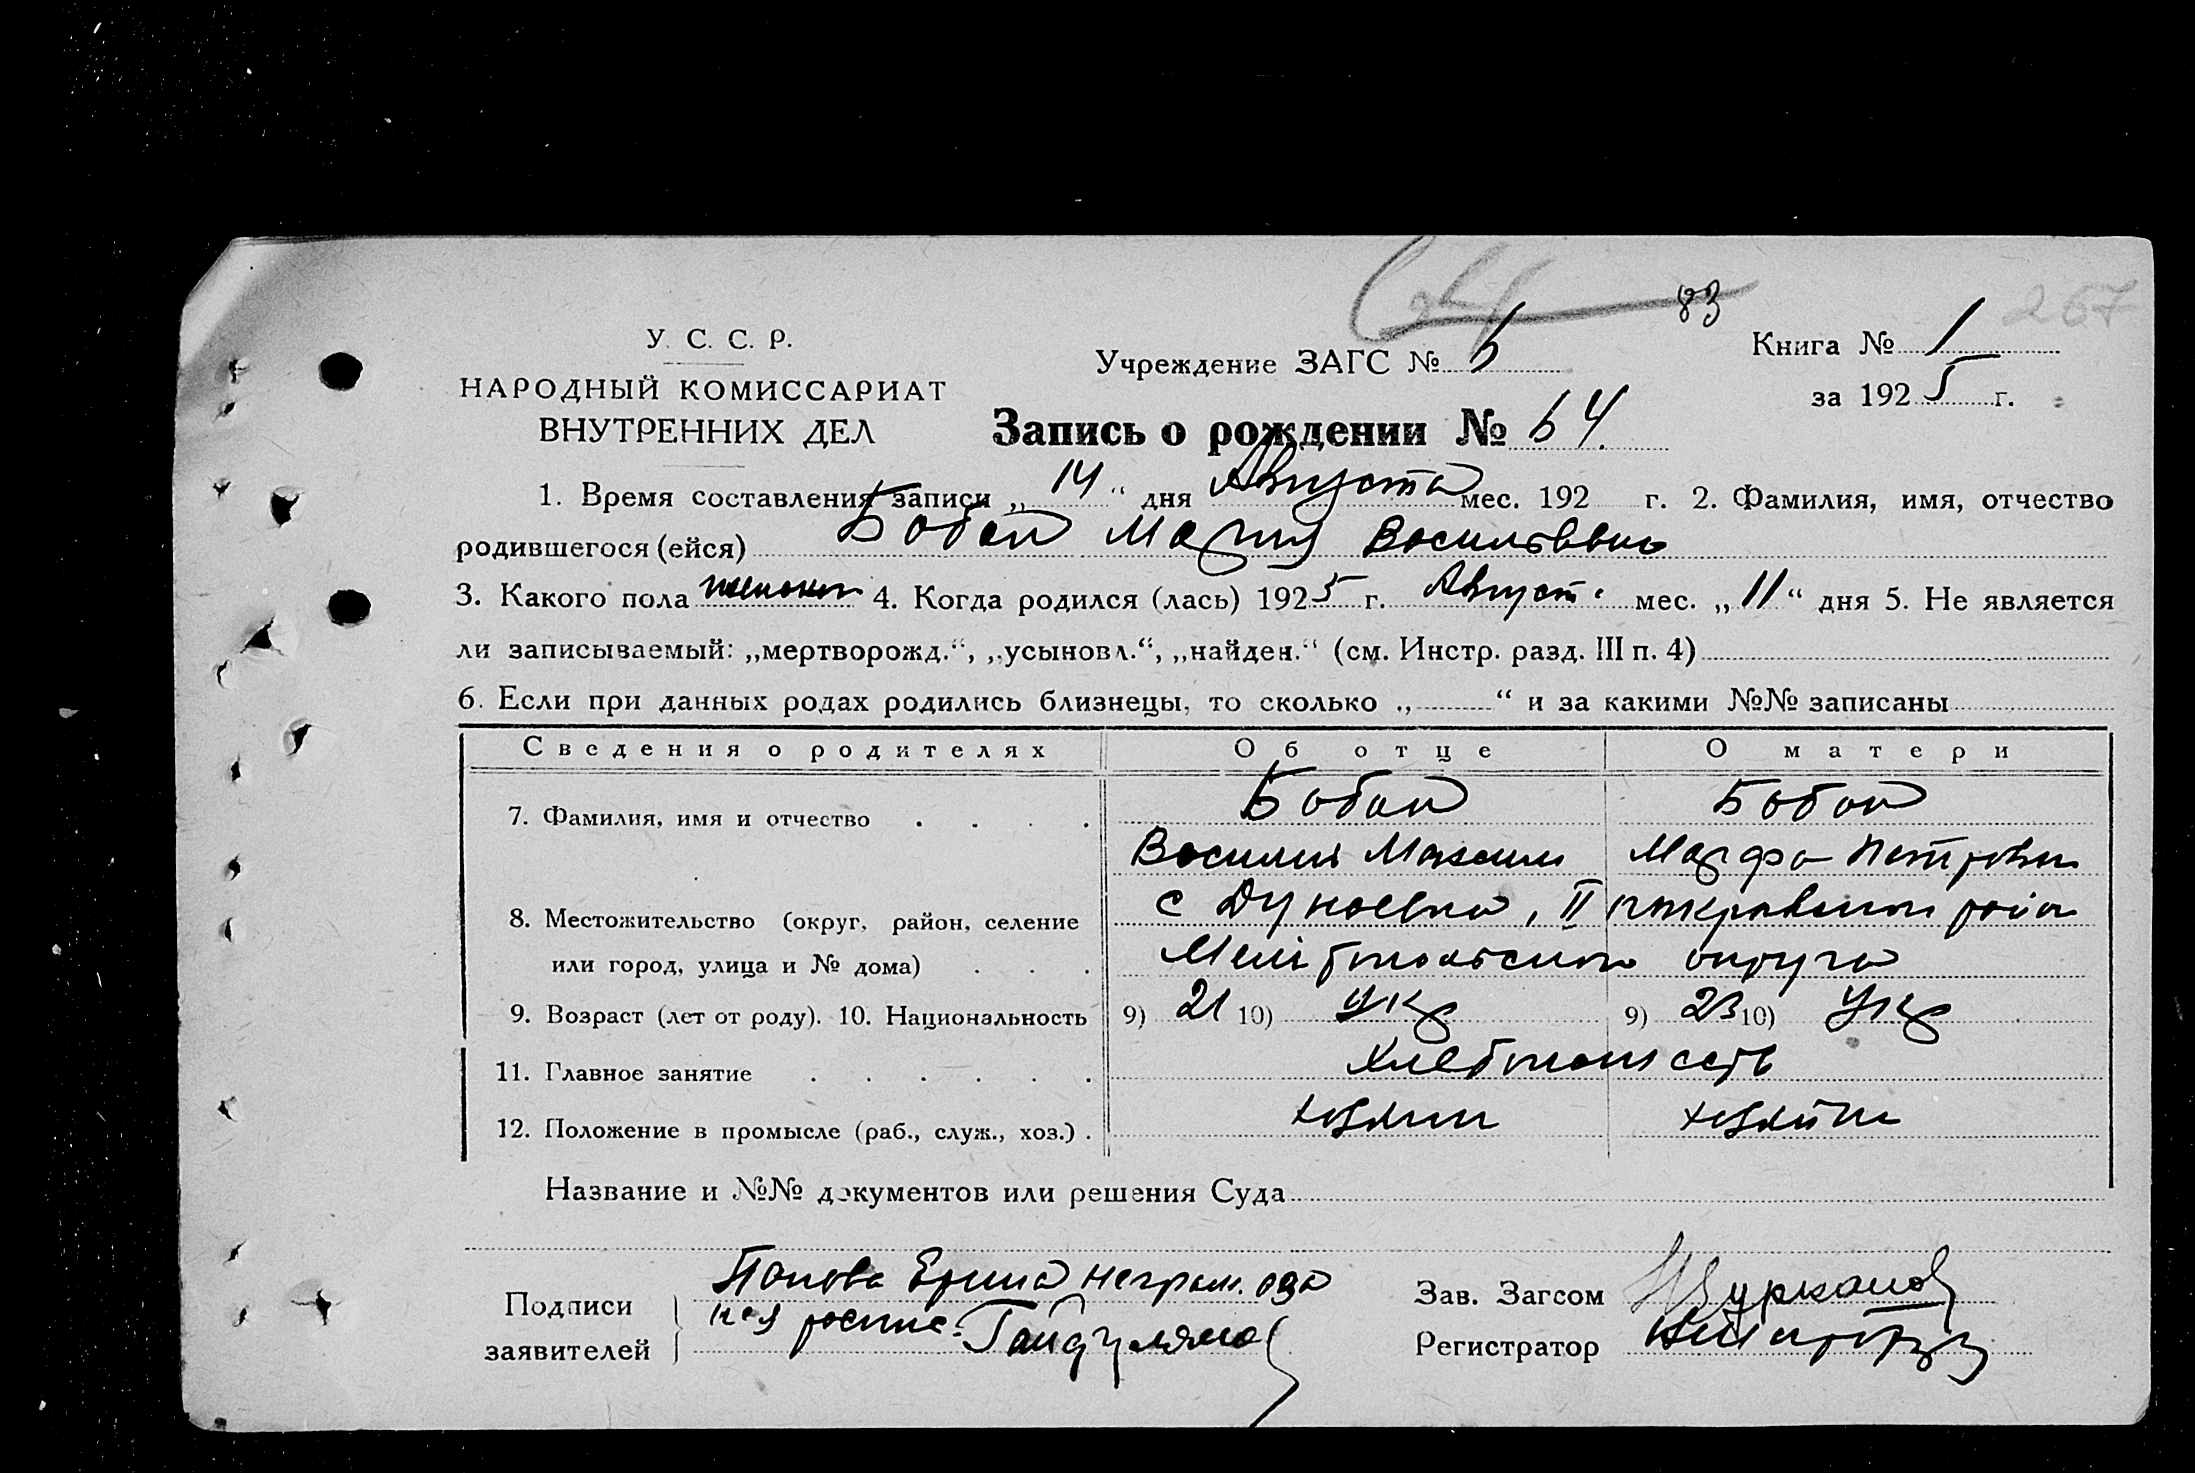 83
267
У. С. С. Р.
НАРОДНЫЙ КОМИССАРИАТ
ВНУТРЕННИХ ДЕЛ
Учреждение ЗАГС №
Книга № 1
за 1925 г.
Запись о рождении № 64.
1. Время составления записи „14“ дня Августа мес. 192 г. 2. Фамилия, имя, отчество
родившегося (ейся) Бабай Мария Васильевна
3. Какого пола женский 4. Когда родился (лась) 1925 г. Август. мес. „11“ дня 5. Не является
ли записываемый: „мертворожд.“, „усыновл.“, „найден.“ (см. Инстр. разд. III п. 4)
6. Если при данных родах родились близнецы, то сколько „ “ и за какими №№ записаны
Сведения о родителях Об отце О матери
7. Фамилия, имя и отчество Бабай Бабай
Василий Максим Марфа Петровна
8. Местожительство (округ, район, селение с Дунаевка, II покровский район
или город, улица и № дома) Мелитопольского округа
9. Возраст (лет от роду). 10. Национальность 9) 21 10) Укр 9) 23 10) Укр
11. Главное занятие Хлебопашество
12. Положение в промысле (раб., служ., хоз.) хозяин хозяйка
Название и №№ документов или решения Суда
Подписи
заявителей
Попова неграм. за
нея роспис. Гайдуляно
Зав. Загсом
Регистратор